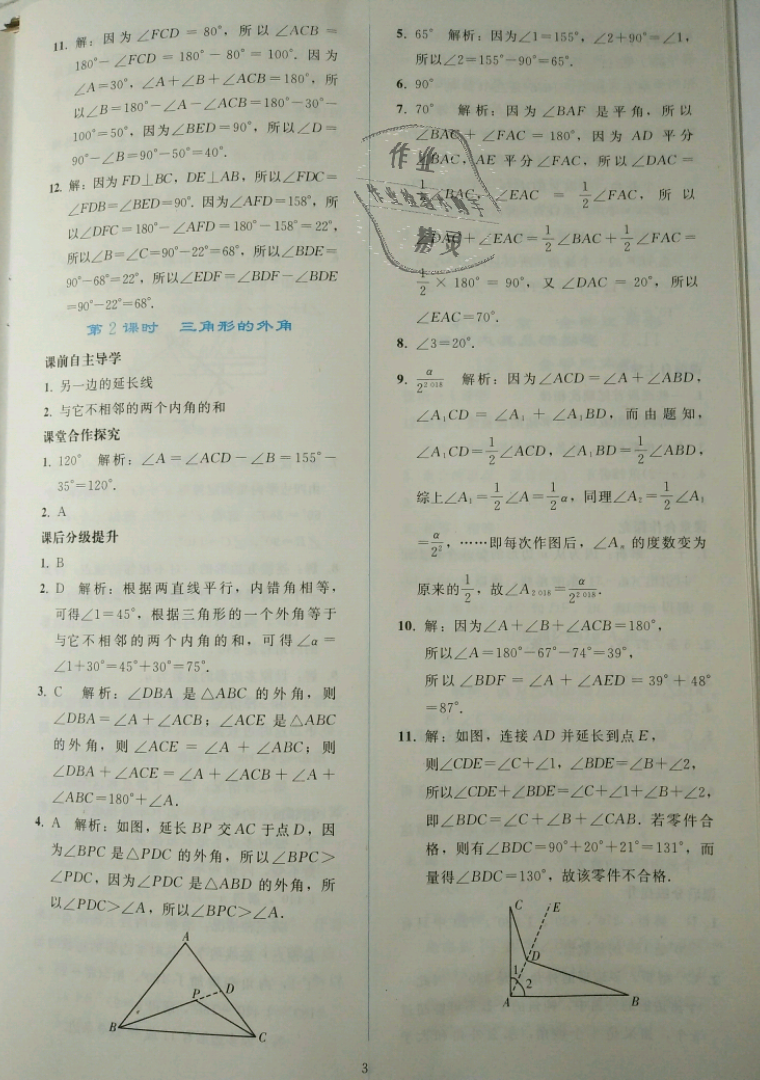 11. 解：因为∠FCD = 80°，所以∠ACB =
180°−∠FCD = 180°−80° = 100°. 因为
∠A=30°，∠A+∠B+∠ACB=180°，所
以∠B=180°−∠A−∠ACB=180°−30°−
100°=50°，因为∠BED=90°，所以∠D=
90°−∠B=90°−50°=40°.
12. 解：因为FD⊥BC，DE⊥AB，所以∠FDC=
∠FDB=∠BED=90°. 因为∠AFD=158°，所
以∠DFC=180°−∠AFD=180°−158°=22°，
所以∠B=∠C=90°−22°=68°，所以∠BDE=
90°−68°=22°，所以∠EDF=∠BDF−∠BDE
=90°−22°=68°.
第2课时 三角形的外角
课前自主导学
1. 另一边的延长线
2. 与它不相邻的两个内角的和
课堂合作探究
1. 120° 解析：∠A=∠ACD−∠B=155°−
35°=120°.
2. A
课后分级提升
1. B
2. D 解析：根据两直线平行，内错角相等，
可得∠1=45°，根据三角形的一个外角等于
与它不相邻的两个内角的和，可得∠α=
∠1+30°=45°+30°=75°.
3. C 解析：∠DBA 是△ABC 的外角，则
∠DBA=∠A+∠ACB；∠ACE 是△ABC
的外角，则∠ACE=∠A+∠ABC；则
∠DBA+∠ACE=∠A+∠ACB+∠A+
∠ABC=180°+∠A.
4. A 解析：如图，延长 BP 交AC 于点D，因
为∠BPC 是△PDC 的外角，所以∠BPC>
∠PDC，因为∠PDC 是△ABD 的外角，所
以∠PDC>∠A，所以∠BPC>∠A.
A
P
D
B
C
5. 65° 解析：因为∠1=155°，∠2+90°=∠1，
所以∠2=155°−90°=65°.
6. 90°
7. 70° 解析：因为∠BAF 是平角，所以
∠BAC+∠FAC=180°，因为 AD 平分
∠BAC，AE 平分∠FAC，所以∠DAC=
1/2∠BAC，∠EAC = 1/2∠FAC，所以
∠DAC+∠EAC=1/2∠BAC+1/2∠FAC=
1/2×180°=90°，又∠DAC=20°，所以
∠EAC=70°.
8. ∠3=20°.
9. α/2^2 018 解析：因为∠ACD=∠A+∠ABD，
∠A₁CD=∠A₁+∠A₁BD，而由题知，
∠A₁CD=1/2∠ACD，∠A₁BD=1/2∠ABD，
综上∠A₁=1/2∠A=1/2α，同理∠A₂=1/2∠A₁
=α/2²，……即每次作图后，∠Aₙ的度数变为
原来的1/2，故∠A₂ ₀₁₈=α/2^2 018.
10. 解：因为∠A+∠B+∠ACB=180°，
所以∠A=180°−67°−74°=39°，
所以∠BDF=∠A+∠AED=39°+48°
=87°.
11. 解：如图，连接 AD 并延长到点E，
则∠CDE=∠C+∠1，∠BDE=∠B+∠2，
所以∠CDE+∠BDE=∠C+∠1+∠B+∠2，
即∠BDC=∠C+∠B+∠CAB. 若零件合
格，则有∠BDC=90°+20°+21°=131°，而
量得∠BDC=130°，故该零件不合格.
C
E
D
1
2
A
B
作业
精灵
3